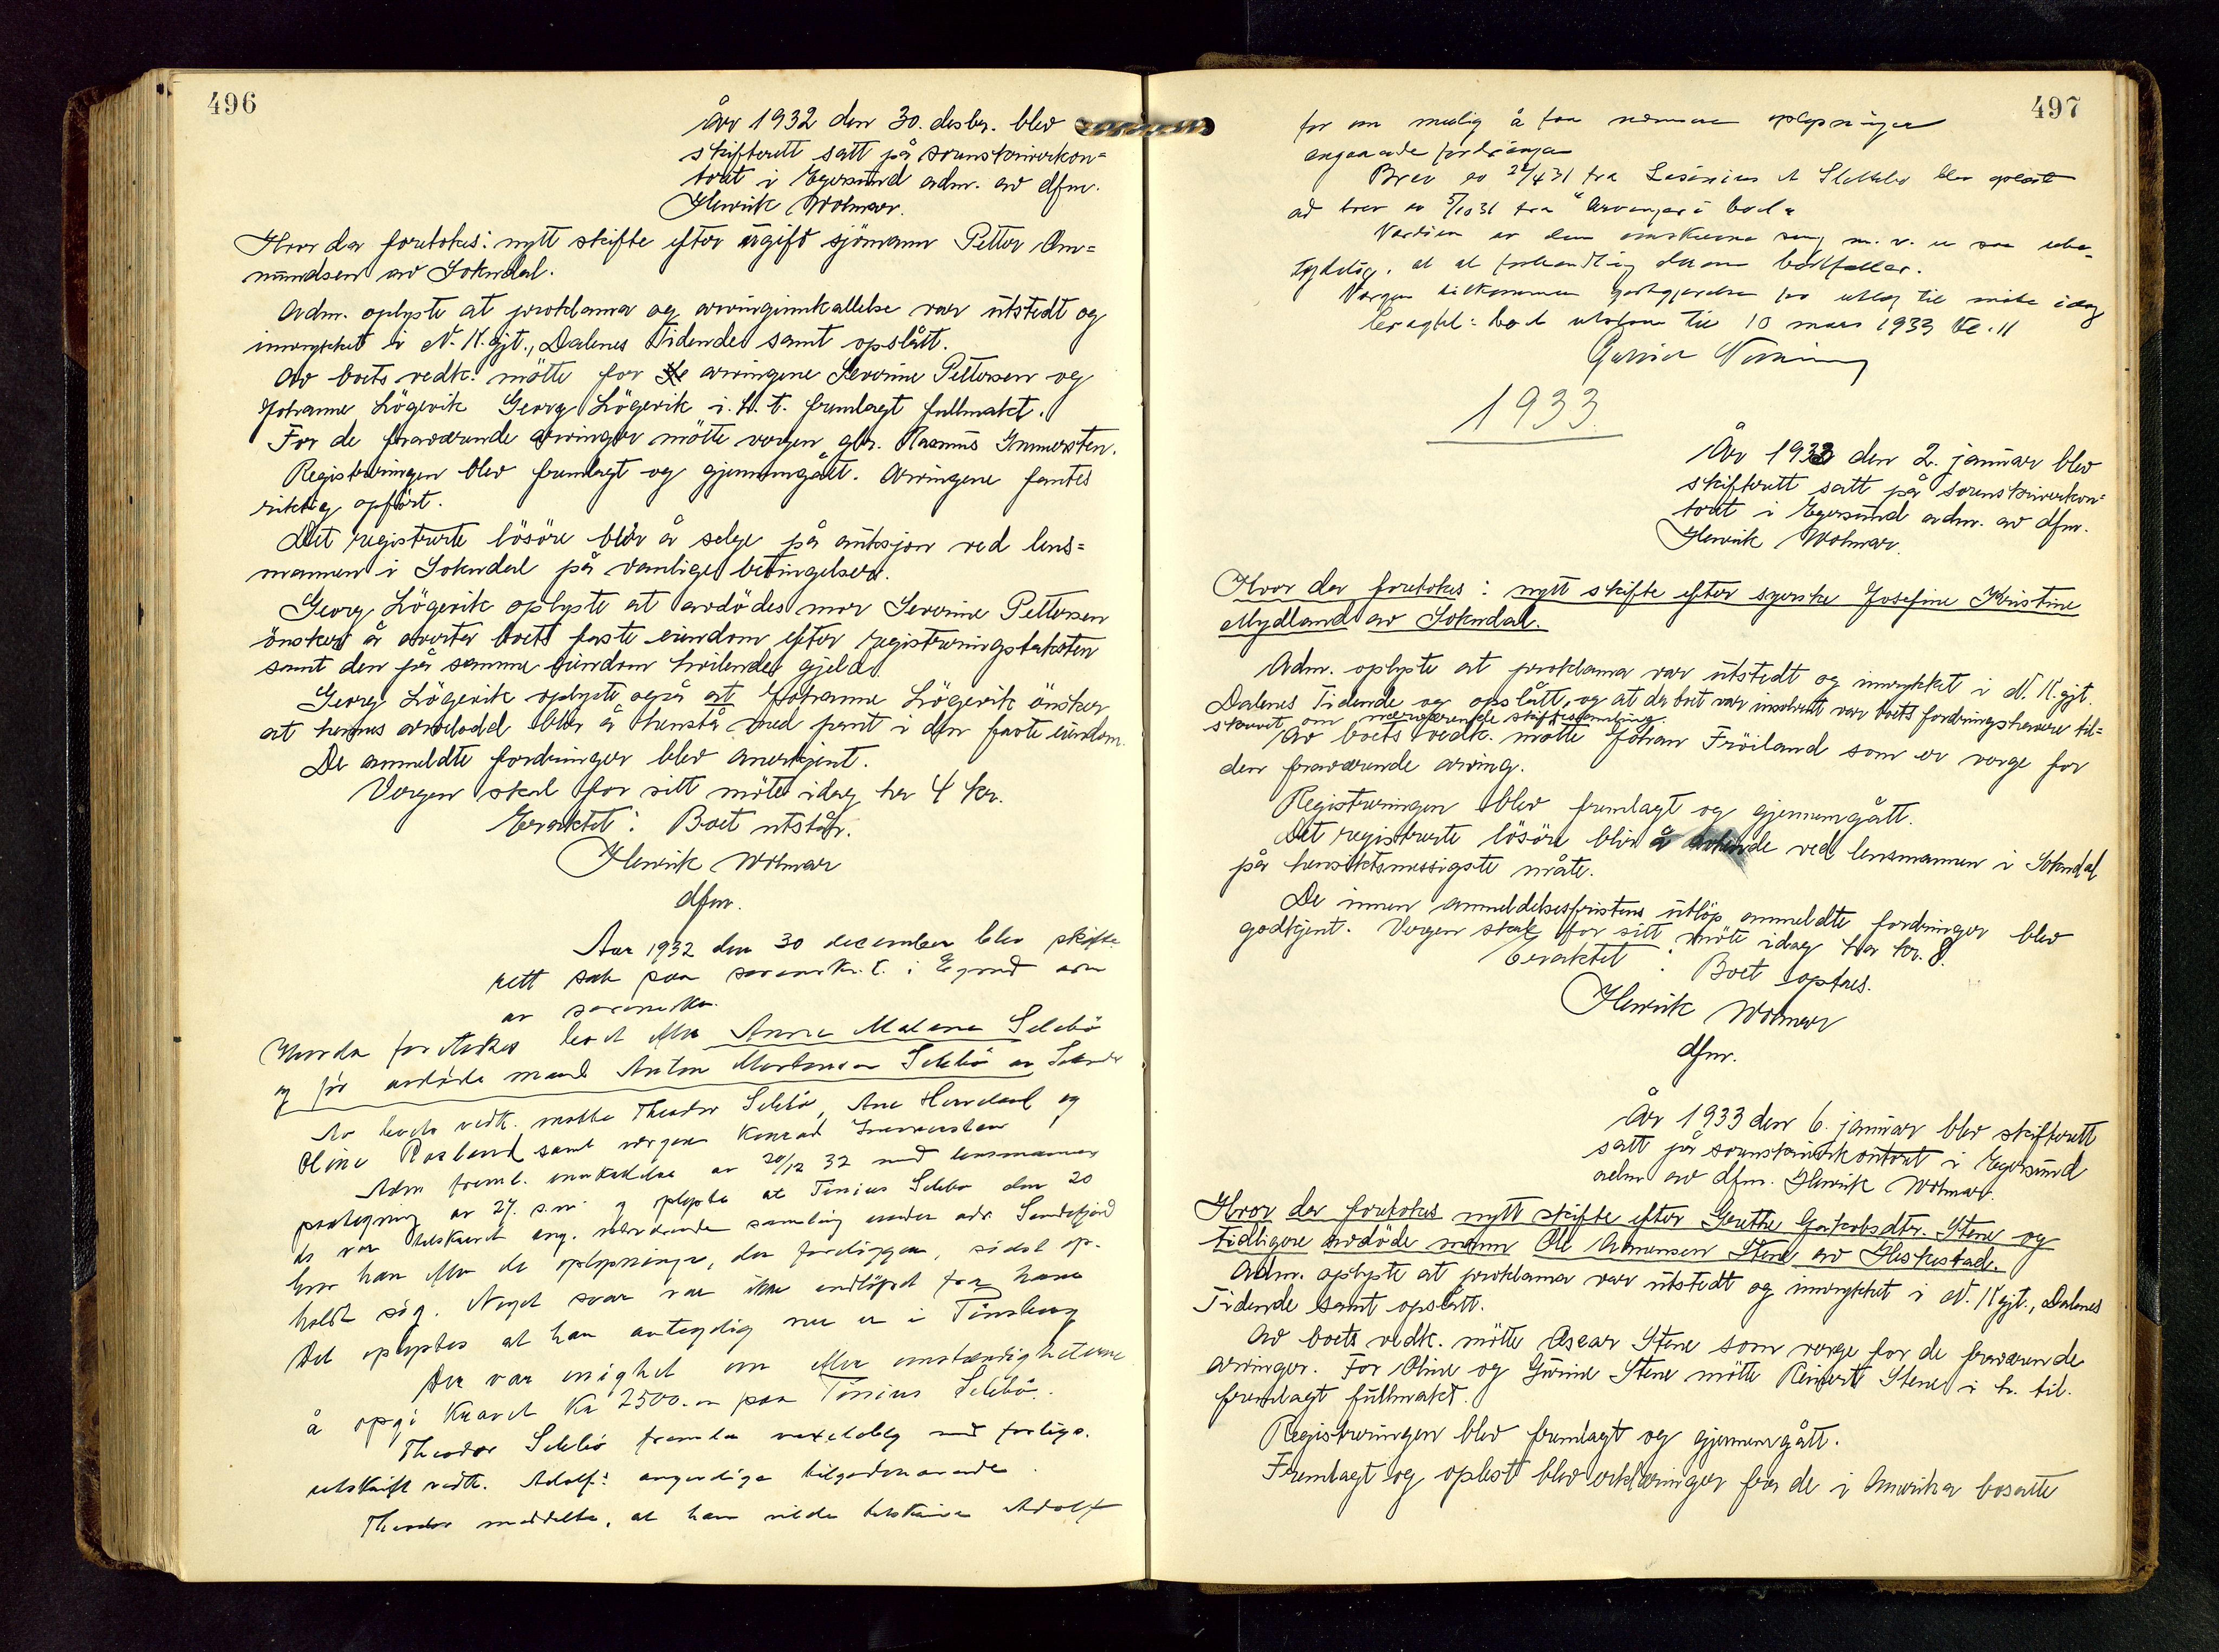 496
År 1932 den 30. desbr. blev
skifterett satt på sorenskriverkon=
toret i Egersund adm. av dfm.
Henrik Wolmar.
Hvor da foretokes: nytt skifte efter ugift sjömann Petter Am=
mundsen av Sokndal.
Adm. oplyste at proklama og arvinginnkallelse var utstedt og
innrykket i N. K.gjt., Dalenes Tidende samt opslått.
Av boets vedk. mötte for arvingene Severine Pettersen og
Johanne Lögevik Georg Lögevik i. h. t. fremlagt fullmakt.
For de fraværende arvinger mötte vergen gbr. Rasmus Immersten.
Registreringen blev fremlagt og gjennemgått. Arvingene fantes
riktig opfört.
Det registrerte lösöre blir å selge på auksjon ved lens=
mannen i Sokndal på vanlige betingelser.
Georg Lögevik oplyste at avdödes mor Severine Pettersen
önsker å overta boets faste eiendom efter registreringstaksten
samt den på samme eiendom hvilende gjeld.
Georg Lögevik oplyste også at Johanne Lögevik önsker
at hennes arvelodd blir å henstå med pant i den faste eiendom.
De anmeldte fordringer blev anerkjent.
Vergen skal for sitt möte idag ha 4 kr.
Eraktet: Boet utstår.
Henrik Wolmar
dfm.
Aar 1932 den 30 december blev skifte
rett satt paa sorenskr.k. i Egersund adm
av sorenskr.
Hvorda foretokes boet efter Anna Malena Selebö
og för avdöde mand Anton Mortensen Selebö av
Av boets vedk. mötte Theodor Selebö, Ane og
Oline Rosland samt vergen Konrad
Adm freml. innkaldelse av 20/12 32 med lensmannens
paategning av 27. s.m. og oplyste at Tönnes Selebö den 20
ds var tilskrevet ang. nærværende samling under adr Sandefjord
hvor han efter de oplysninger, der foreligger, sidst op-
holdt sig. Noget svar var ikke indlöpet fra ham
Det oplystes at han antagelig nu er i Tönsberg
Der var enighet om efter omstændigheterne
å opgi kravet Kr 2500.- paa Tönnes Selebö.
Theodor Selebö fremla med forligs.
utskrift vedk. Adolfs angivelige tilgodehavende
Theodor meddelte, at han vilde tilskrive Adolf
497
for om mulig å faa nærmere oplysninger
angaaende fordringen
Brev av 22/4 31 fra blev oplest
og brev av 5/10 31 fra "Arvinger i boet"
Verdien av den m. v. er saa ube-
tydelig, at al forhandling derom bortfaller.
Vergen tilkommer godtgjörelse for utlæg til möte idag
Eragtet: boet utstaar til 10 mars 1933 kl. 11
1933
År 1933 den 2. januar blev
skifterett satt på sorenskriverkon=
toret i Egersund adm. av dfm.
Henrik Wolmar.
Hvor da foretokes: nytt skifte efter syerske Josefine Kristine
Mydland av Sokndal.
Adm. oplyste at proklama var utstedt og innrykket i N. K.gjt.
Dalenes Tidende og opslått, og at da boet var insolvent var boets fordringshavere til=
skrevet om nærværende skiftesamling.
Av boets vedk. mötte Johan Fröiland som er verge for
den fraværende arving.
Registreringen blev fremlagt og gjennemgått.
Det registrerte lösöre blir å avhende ved lensmannen i Sokndal
på hensiktsmessigste måte.
De innen anmeldelsesfristens utlöp anmeldte fordringer blev
godkjent. Vergen skal for sitt möte idag ha kr. 8.
Eraktet: Boet optas.
Henrik Wolmar
dfm.
År 1933 den 6. januar blev skifterett
satt på sorenskriverkontoret i Egersund
adm av dfm. Henrik Wolmar.
Hvor da foretokes nytt skifte efter Grethe Jakobsdtr. Stene og
tidligere avdöde mann Ole Stene av Heskestad.
Adm. oplyste at proklama var utstedt og innrykket i N. K.gjt., Dalenes
Tidende samt opslått.
Av boets vedk. mötte Oscar Stene som verge for de fraværende
arvinger. For Oline og Stene mötte Reinert Stene i h. til.
fremlagt fullmakt.
Registreringen blev fremlagt og gjennemgått.
Fremlagt og oplest blev erklæringer fra de i Amerika bosatte